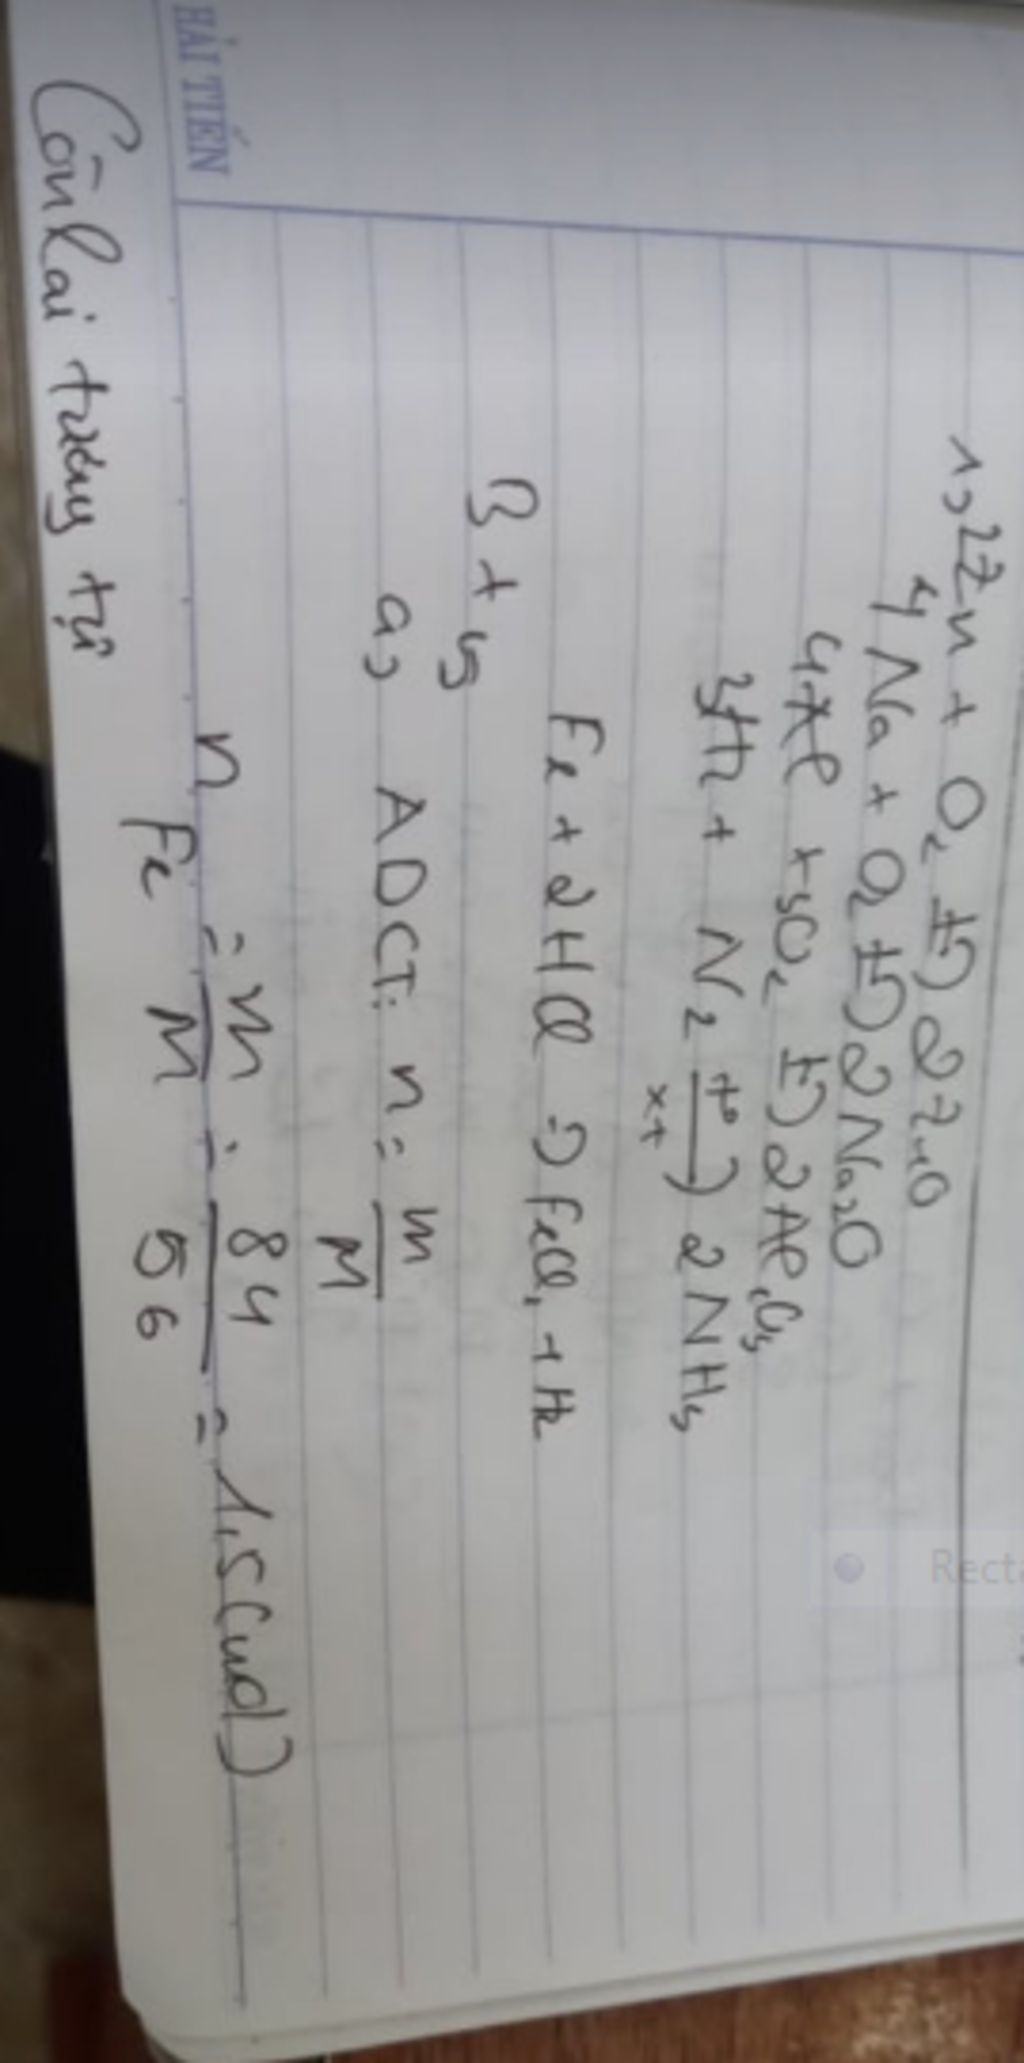 1, 2Zn + O2 t°→ 2ZnO
4Na + O2 t°→ 2Na2O
4Al + 3O2 t°→ 2Al2O3
3H2 + N2 t° xt → 2NH3
Fe + 2HCl → FeCl2 + H2
B + 5
a, ADCT: n = m/M
nFe = m/M = 84/56 = 1,5 (mol)
Còn lại tương tự
HẢI TIẾN
Recta